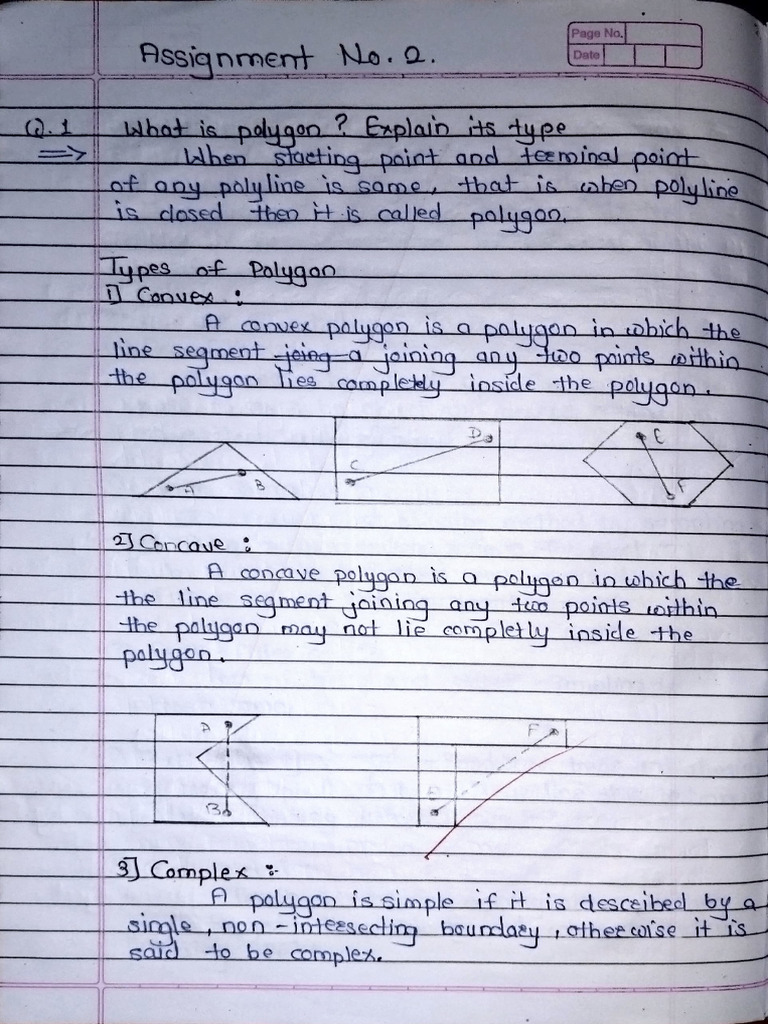 Page No.
Date
Assignment No. 2.
Q.1 What is polygon? Explain its type
⇒ When starting point and terminal point
of any polyline is same, that is when polyline
is closed then it is called polygon.
Types of Polygon
1] Convex :
A convex polygon is a polygon in which the
line segment joing a joining any two points within
the polygon lies completely inside the polygon.
A B
C D
E F
2] Concave :
A concave polygon is a polygon in which the
the line segment joining any two points within
the polygon may not lie completly inside the
polygon.
A
B
F
E
3] Complex :-
A polygon is simple if it is described by a
single, non-intersecting boundary, otherwise it is
said to be complex.